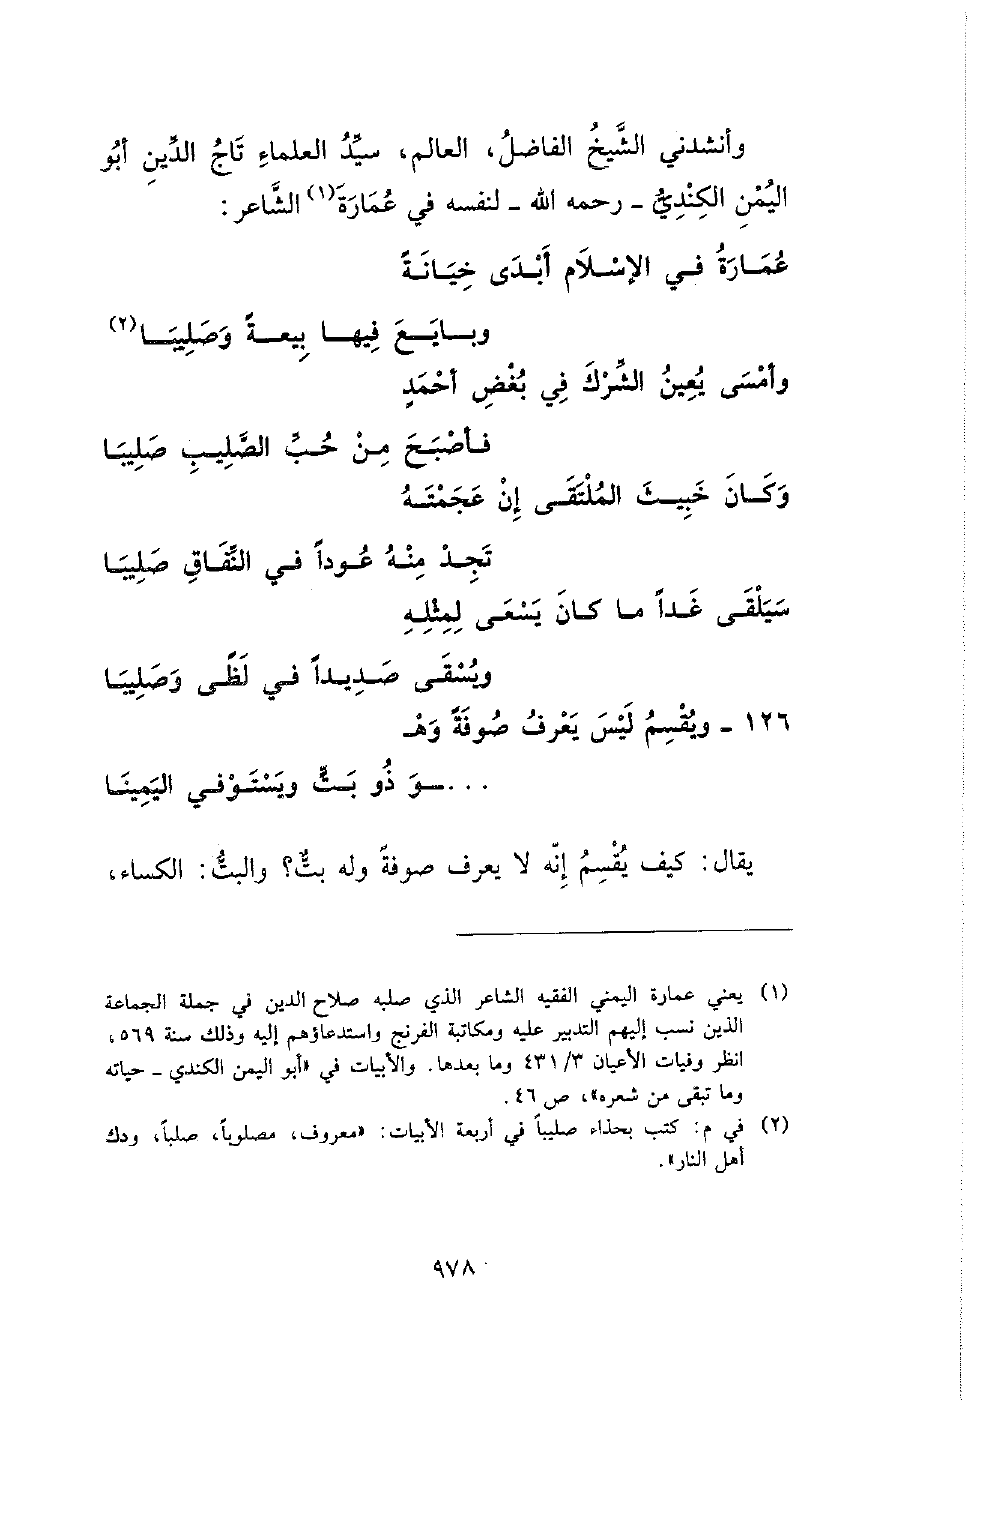 وأنشدني الشَّيخُ الفاضلُ، العالم، سيِّدُ العلماءِ تَاجُ الدِّينِ أبُو
اليُمْنِ الكِنْدِيُّ ـ رحمه الله ـ لنفسه في عُمَارَةَ(١) الشَّاعر :
عُمَـارَةُ فـي الإسْـلَامِ أَبْـدَى خِيَـانَـةً
وبـايَـعَ فِيهـا بِيعـةً وَصَلِيبَـا(٢)
وأمْسَى يُعِينُ الشِّرْكَ فِي بُغْضِ أحْمَدٍ
فـأصْبَـحَ مِـنْ حُـبِّ الصَّلِيبِ صَلِيبَا
وَكَـانَ خَبِيـثَ المُلْتَقَـى إنْ عَجَمْتَـهُ
تَجِـدْ مِنْـهُ عُـوداً فـي النِّفَـاقِ صَلِيبَا
سَيَلْقَـى غَـداً مـا كـانَ يَسْعَـى لِمِثْلِـهِ
ويُسْقَـى صَـدِيـداً فـي لَظًـى وَصَلِيبَا
١٢٦ ـ ويُقْسِمُ لَيْسَ يَعْرفُ صُوفَةً وَهْـ
. . .ـوَ ذُو بَـتٍّ ويَسْتَـوْفـي اليَمِينَـا
يقال: كيف يُقْسِمُ إنّه لا يعرف صوفةً وله بتٌّ؟ والبتُّ: الكساء،
(١) يعني عمارة اليمني الفقيه الشاعر الذي صلبه صلاح الدين في جملة الجماعة
الذين نسب إليهم التدبير عليه ومكاتبة الفرنج واستدعاؤهم إليه وذلك سنة ٥٦٩،
انظر وفيات الأعيان ٣/ ٤٣١ وما بعدها. والأبيات في «أبو اليمن الكندي ـ حياته
وما تبقى من شعره»، ص ٤٦.
(٢) في م: كتب بحذاء صليباً في أربعة الأبيات: «معروف، مصلوباً، صلباً، ودك
أهل النار».
٩٧٨